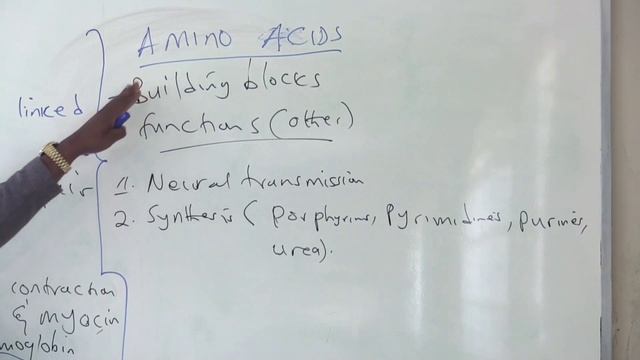 AMINO ACIDS
Building blocks
functions (other)
1. Neural transmission
2. Synthesis (porphyrins, pyrimidines, purines,
urea).
linked
contraction
& myocin
moglobin